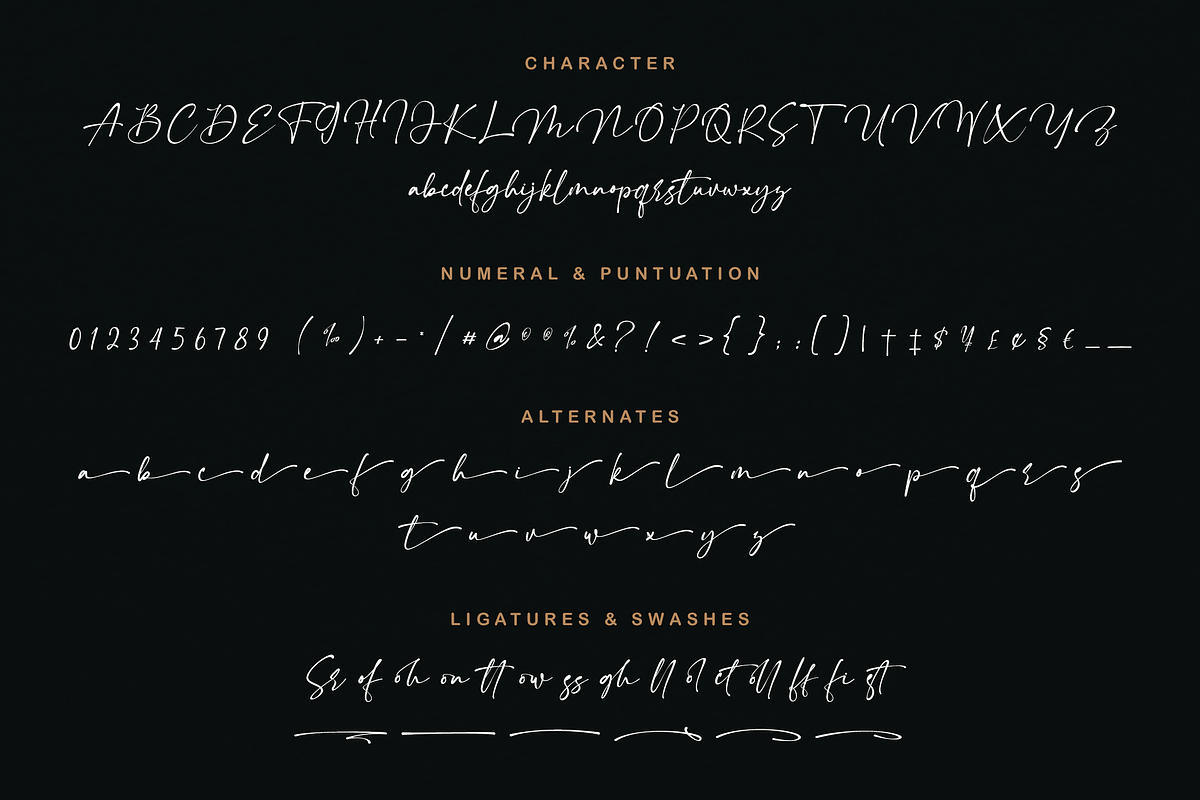 CHARACTER
ABCDEFGHIJKLMNOPQRSTUVWXYZ
abcdefghijklmnopqrstuvwxyz
NUMERAL & PUNTUATION
0123456789 (‰)+-·/#@©®%&?!<>{};:[]|†‡$¥£¢§€–—
ALTERNATES
a b c d e f g h i j k l m n o p q r s
t u v w x y z
LIGATURES & SWASHES
Sr of oh on tt ow ss gh ll ol et oll ff fi st